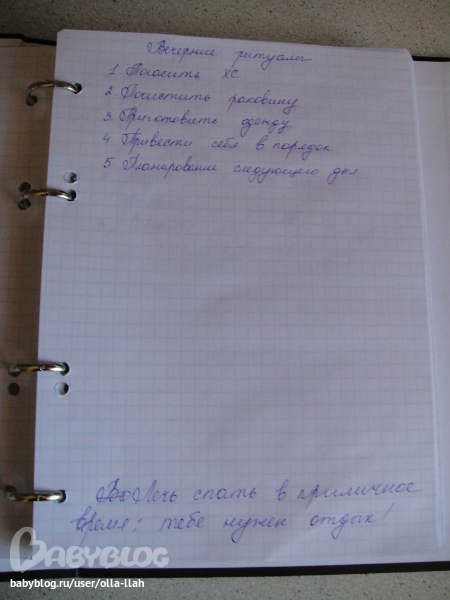 Вечерние ритуалы
1. Погасить ХС
2 Почистить раковину
3. Приготовить одежду
4 Привести себя в порядок
5 Планирование следующего дня
Лечь спать в приличное
время: тебе нужен отдых!
BABYBLOG
babyblog.ru/user/olla-llah